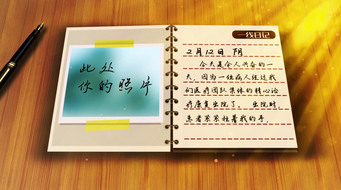 此处
你的照片
一线日记
2月12日 阴
今天是令人兴奋的一
天，因为一组病人经过我
们医疗团队集体的精心治
疗康复出院了。出院时，
患者紧紧拉着我的手，